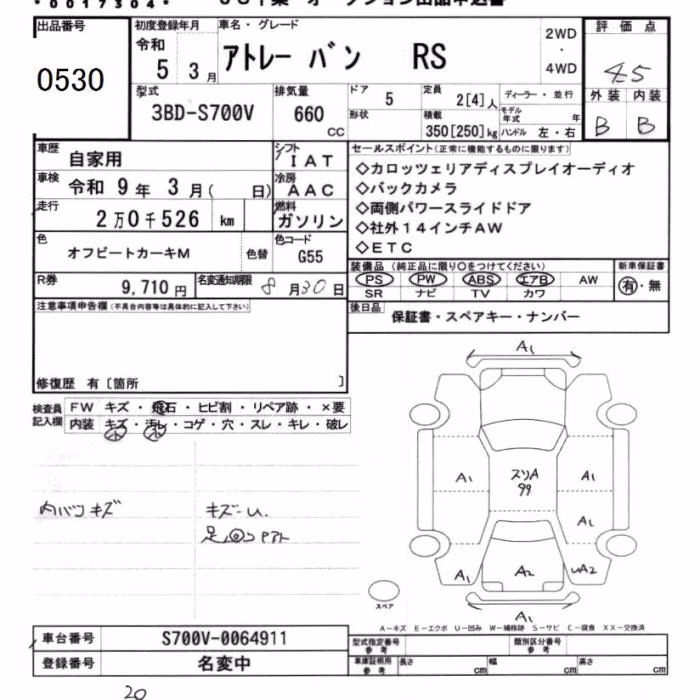 ・0017304・
出品番号 0530
初度登録年月 令和 5 3月
車名・グレード アトレー バン RS
2WD ・ 4WD
評価点 4.5
外装 B 内装 B
型式 3BD-S700V
排気量 660 CC
ドア 5
形状
定員 2[4]人
積載 350[250]kg
ディーラー・並行
モデル年式 年
ハンドル 左・右
車歴 自家用
シフト IAT
車検 令和 9年 3月( 日)
冷房 AAC
走行 2万0千526 km
燃料 ガソリン
色 オフビートカーキM 色替
色コード G55
R券 9,710円
名変通知期限 8月30日
セールスポイント(正常に機能するものに限ります)
◇カロッツェリアディスプレイオーディオ
◇バックカメラ
◇両側パワースライドドア
◇社外14インチAW
◇ETC
装備品(純正品に限り○をつけてください)
PS PW ABS エアB AW
SR ナビ TV カワ
新車保証書 有・無
後日品 保証書・スペアキー・ナンバー
注意事項申告欄(不具合内容等は具体的に記入して下さい)
修復歴 有〔箇所 〕
検査員記入欄
FW キズ・飛石・ヒビ割・リペア跡・×要
内装 キズ・汚レ・コゲ・穴・スレ・キレ・破レ
小 小
内バリキズ
キズ-U.
A1
A1
スリA
99
A1
A1
A1
A2
UA2
A1
スペア
A-キズ E-エクボ U-凹み W-補修跡 S-サビ C-腐食 XX-交換済
車台番号 S700V-0064911
登録番号 名変中
型式指定番号 参考
類別区分番号 参考
車庫証明用 参考
長さ cm 幅 cm 高さ cm
20